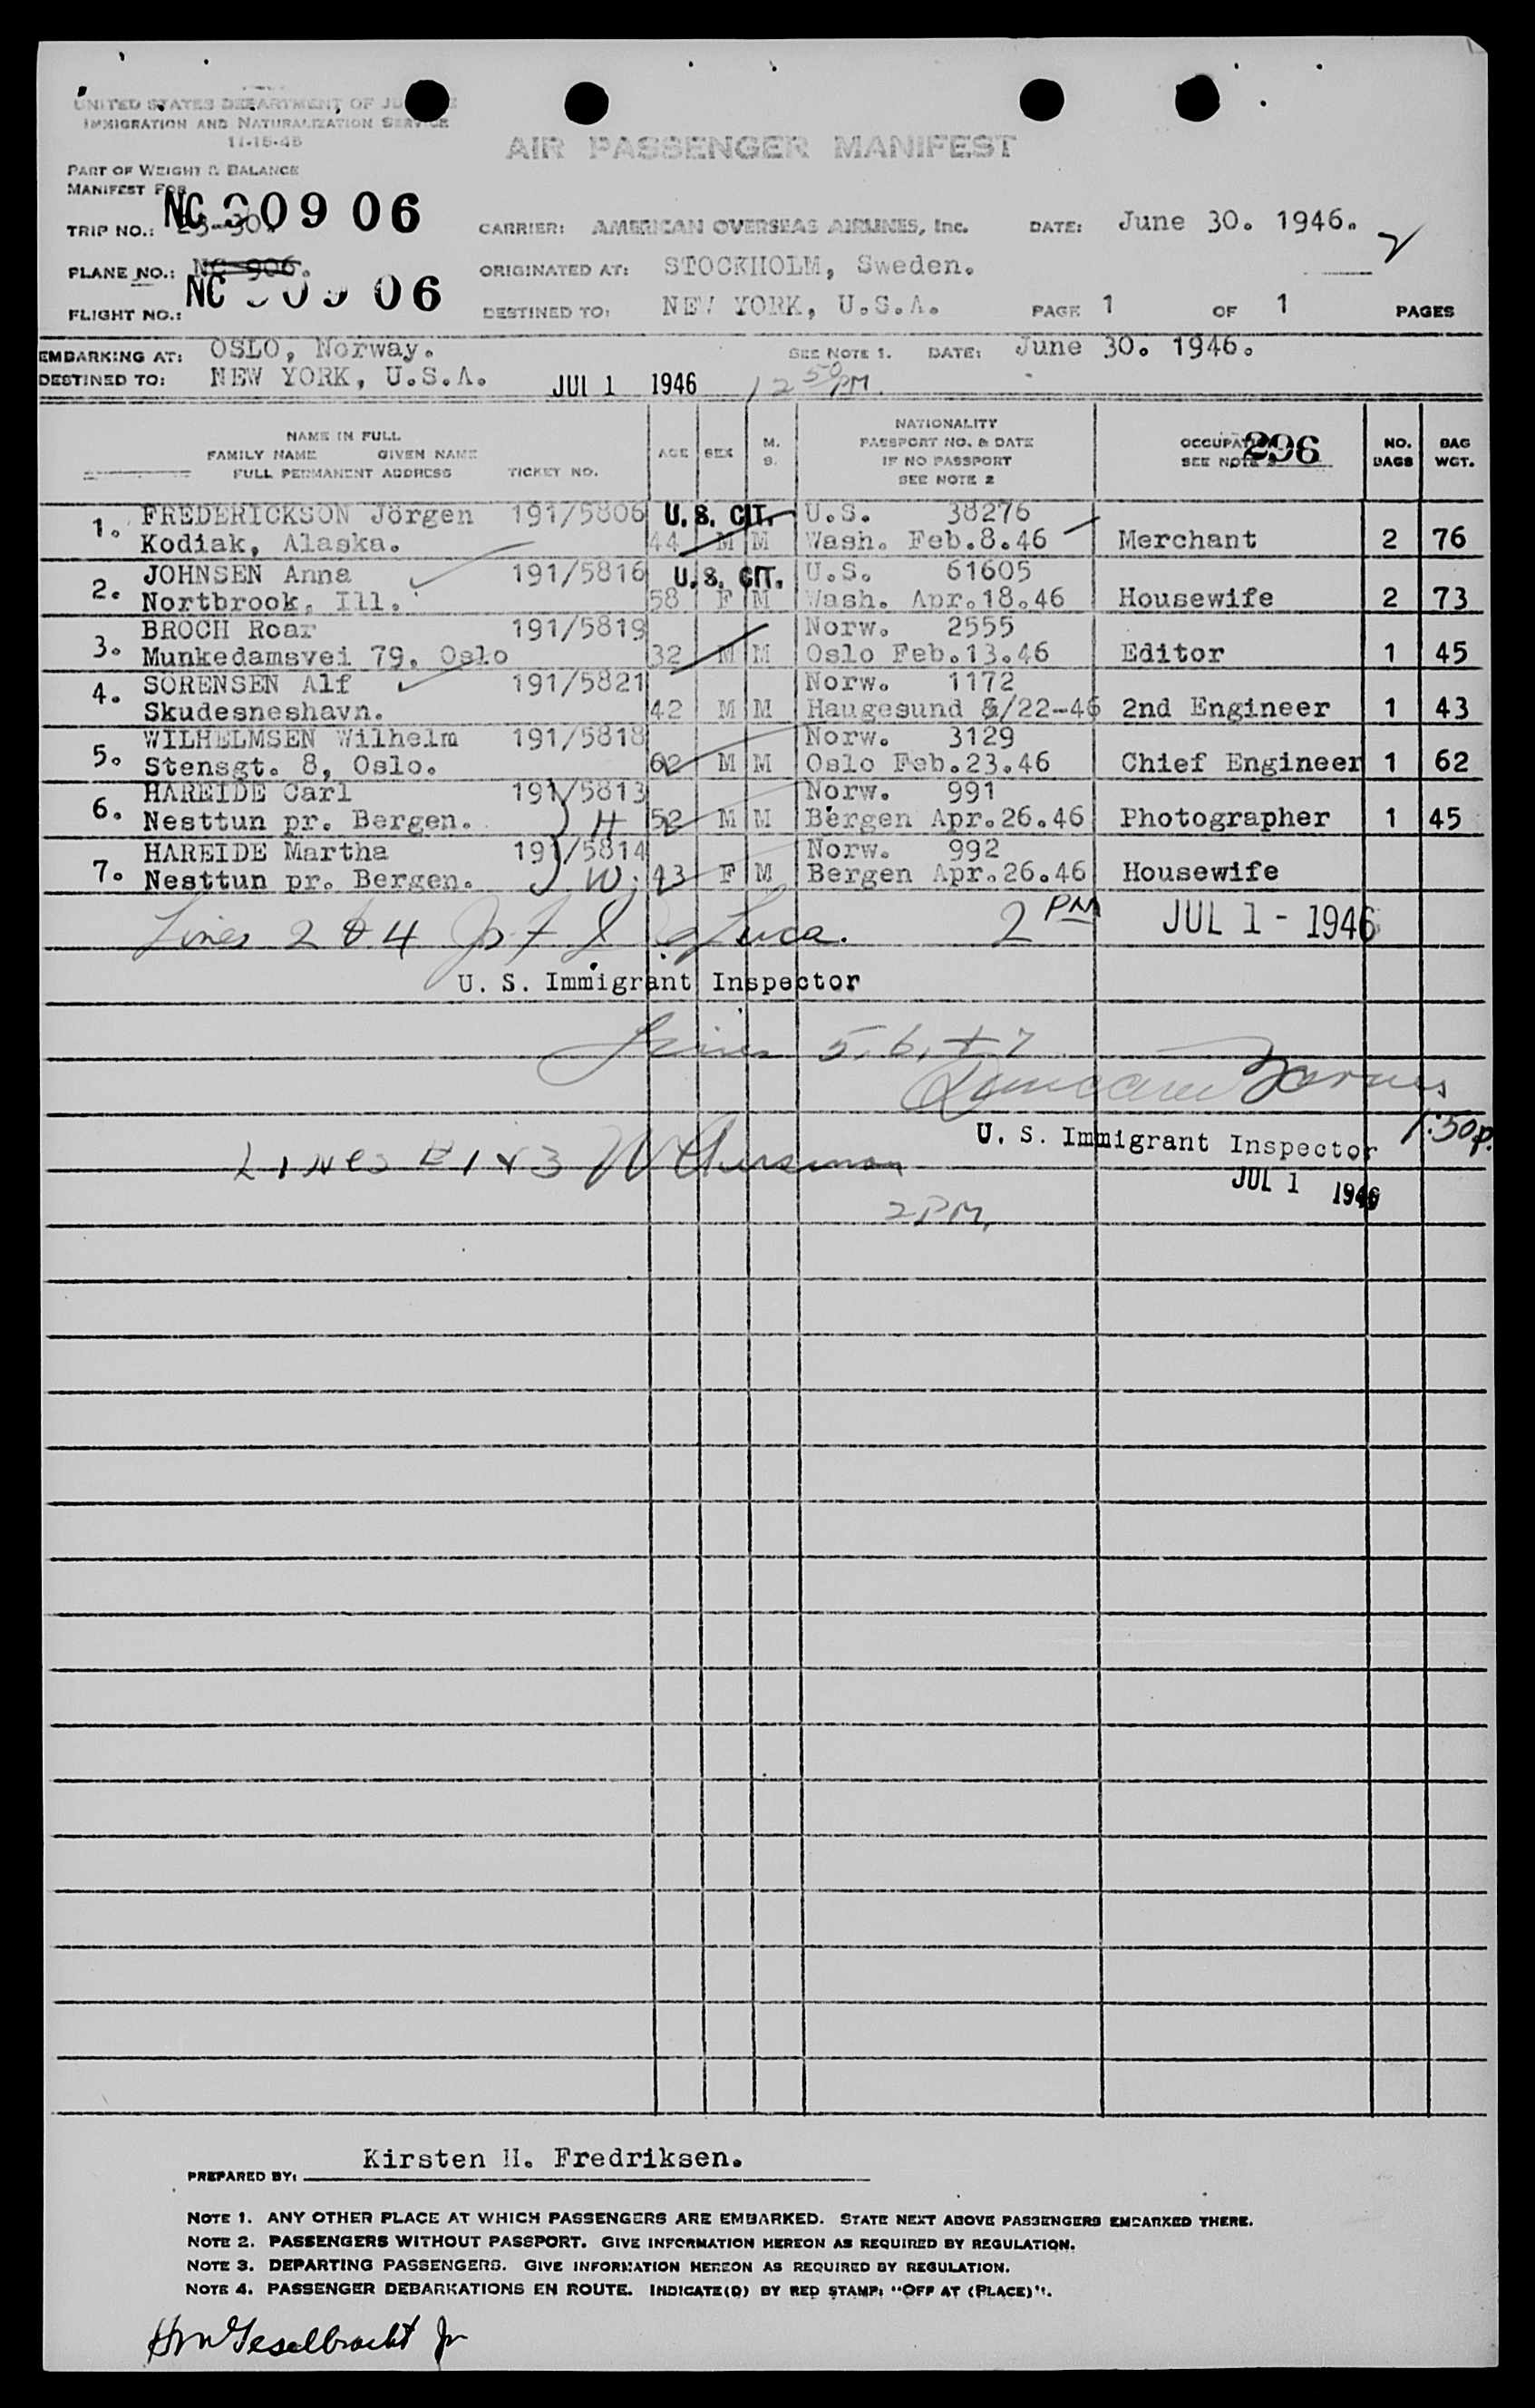 UNITED STATES DEPARTMENT OF JUSTICE
IMMIGRATION AND NATURALIZATION SERVICE
11-15-45
AIR PASSENGER MANIFEST
PART OF WEIGHT & BALANCE
MANIFEST FOR
TRIP NO.: NC 90906 CARRIER: AMERICAN OVERSEAS AIRLINES, Inc. DATE: June 30. 1946. 2
PLANE NO.: NC 906. ORIGINATED AT: STOCKHOLM, Sweden.
FLIGHT NO.: NC 90906 DESTINED TO: NEW YORK, U.S.A. PAGE 1 OF 1 PAGES
EMBARKING AT: OSLO, Norway. SEE NOTE 1. DATE: June 30. 1946.
DESTINED TO: NEW YORK, U.S.A. JUL 1 1946 12 50 PM.
NAME IN FULL
FAMILY NAME GIVEN NAME
FULL PERMANENT ADDRESS TICKET NO. AGE SEX M. S. NATIONALITY
PASSPORT NO. & DATE
IF NO PASSPORT
SEE NOTE 2 OCCUPATION
SEE NOTE 3 296 NO. BAGS BAG WGT.
1. FREDERICKSON Jörgen 191/5806 U.S. CIT. U.S. 38276
Kodiak, Alaska. 44 M M Wash. Feb.8.46 Merchant 2 76
2. JOHNSEN Anna 191/5816 U.S. CIT. U.S. 61605
Nortbrook, Ill. 58 F M Wash. Apr.18.46 Housewife 2 73
3. BROCH Roar 191/5819 Norw. 2555
Munkedamsvei 79, Oslo 32 M M Oslo Feb.13.46 Editor 1 45
4. SORENSEN Alf 191/5821 Norw. 1172
Skudesneshavn. 42 M M Haugesund 5/22-46 2nd Engineer 1 43
5. WILHELMSEN Wilhelm 191/5818 Norw. 3129
Stensgt. 8, Oslo. 62 M M Oslo Feb.23.46 Chief Engineer 1 62
6. HAREIDE Carl 191/5813 Norw. 991
Nesttun pr. Bergen. H 52 M M Bergen Apr.26.46 Photographer 1 45
7. HAREIDE Martha 191/5814 Norw. 992
Nesttun pr. Bergen. W; 43 F M Bergen Apr.26.46 Housewife
Lines 2 & 4 Luca. 2 PM JUL 1 - 1946
U. S. Immigrant Inspector
Lines 5, 6, + 7
U. S. Immigrant Inspector 1:50p.
Lines 1 & 3
JUL 1 1946
2 PM.
PREPARED BY: Kirsten H. Fredriksen.
NOTE 1. ANY OTHER PLACE AT WHICH PASSENGERS ARE EMBARKED. STATE NEXT ABOVE PASSENGERS EMBARKED THERE.
NOTE 2. PASSENGERS WITHOUT PASSPORT. GIVE INFORMATION HEREON AS REQUIRED BY REGULATION.
NOTE 3. DEPARTING PASSENGERS. GIVE INFORMATION HEREON AS REQUIRED BY REGULATION.
NOTE 4. PASSENGER DEBARKATIONS EN ROUTE. INDICATE(D) BY RED STAMP: "OFF AT (PLACE)".
Geselbracht Jr